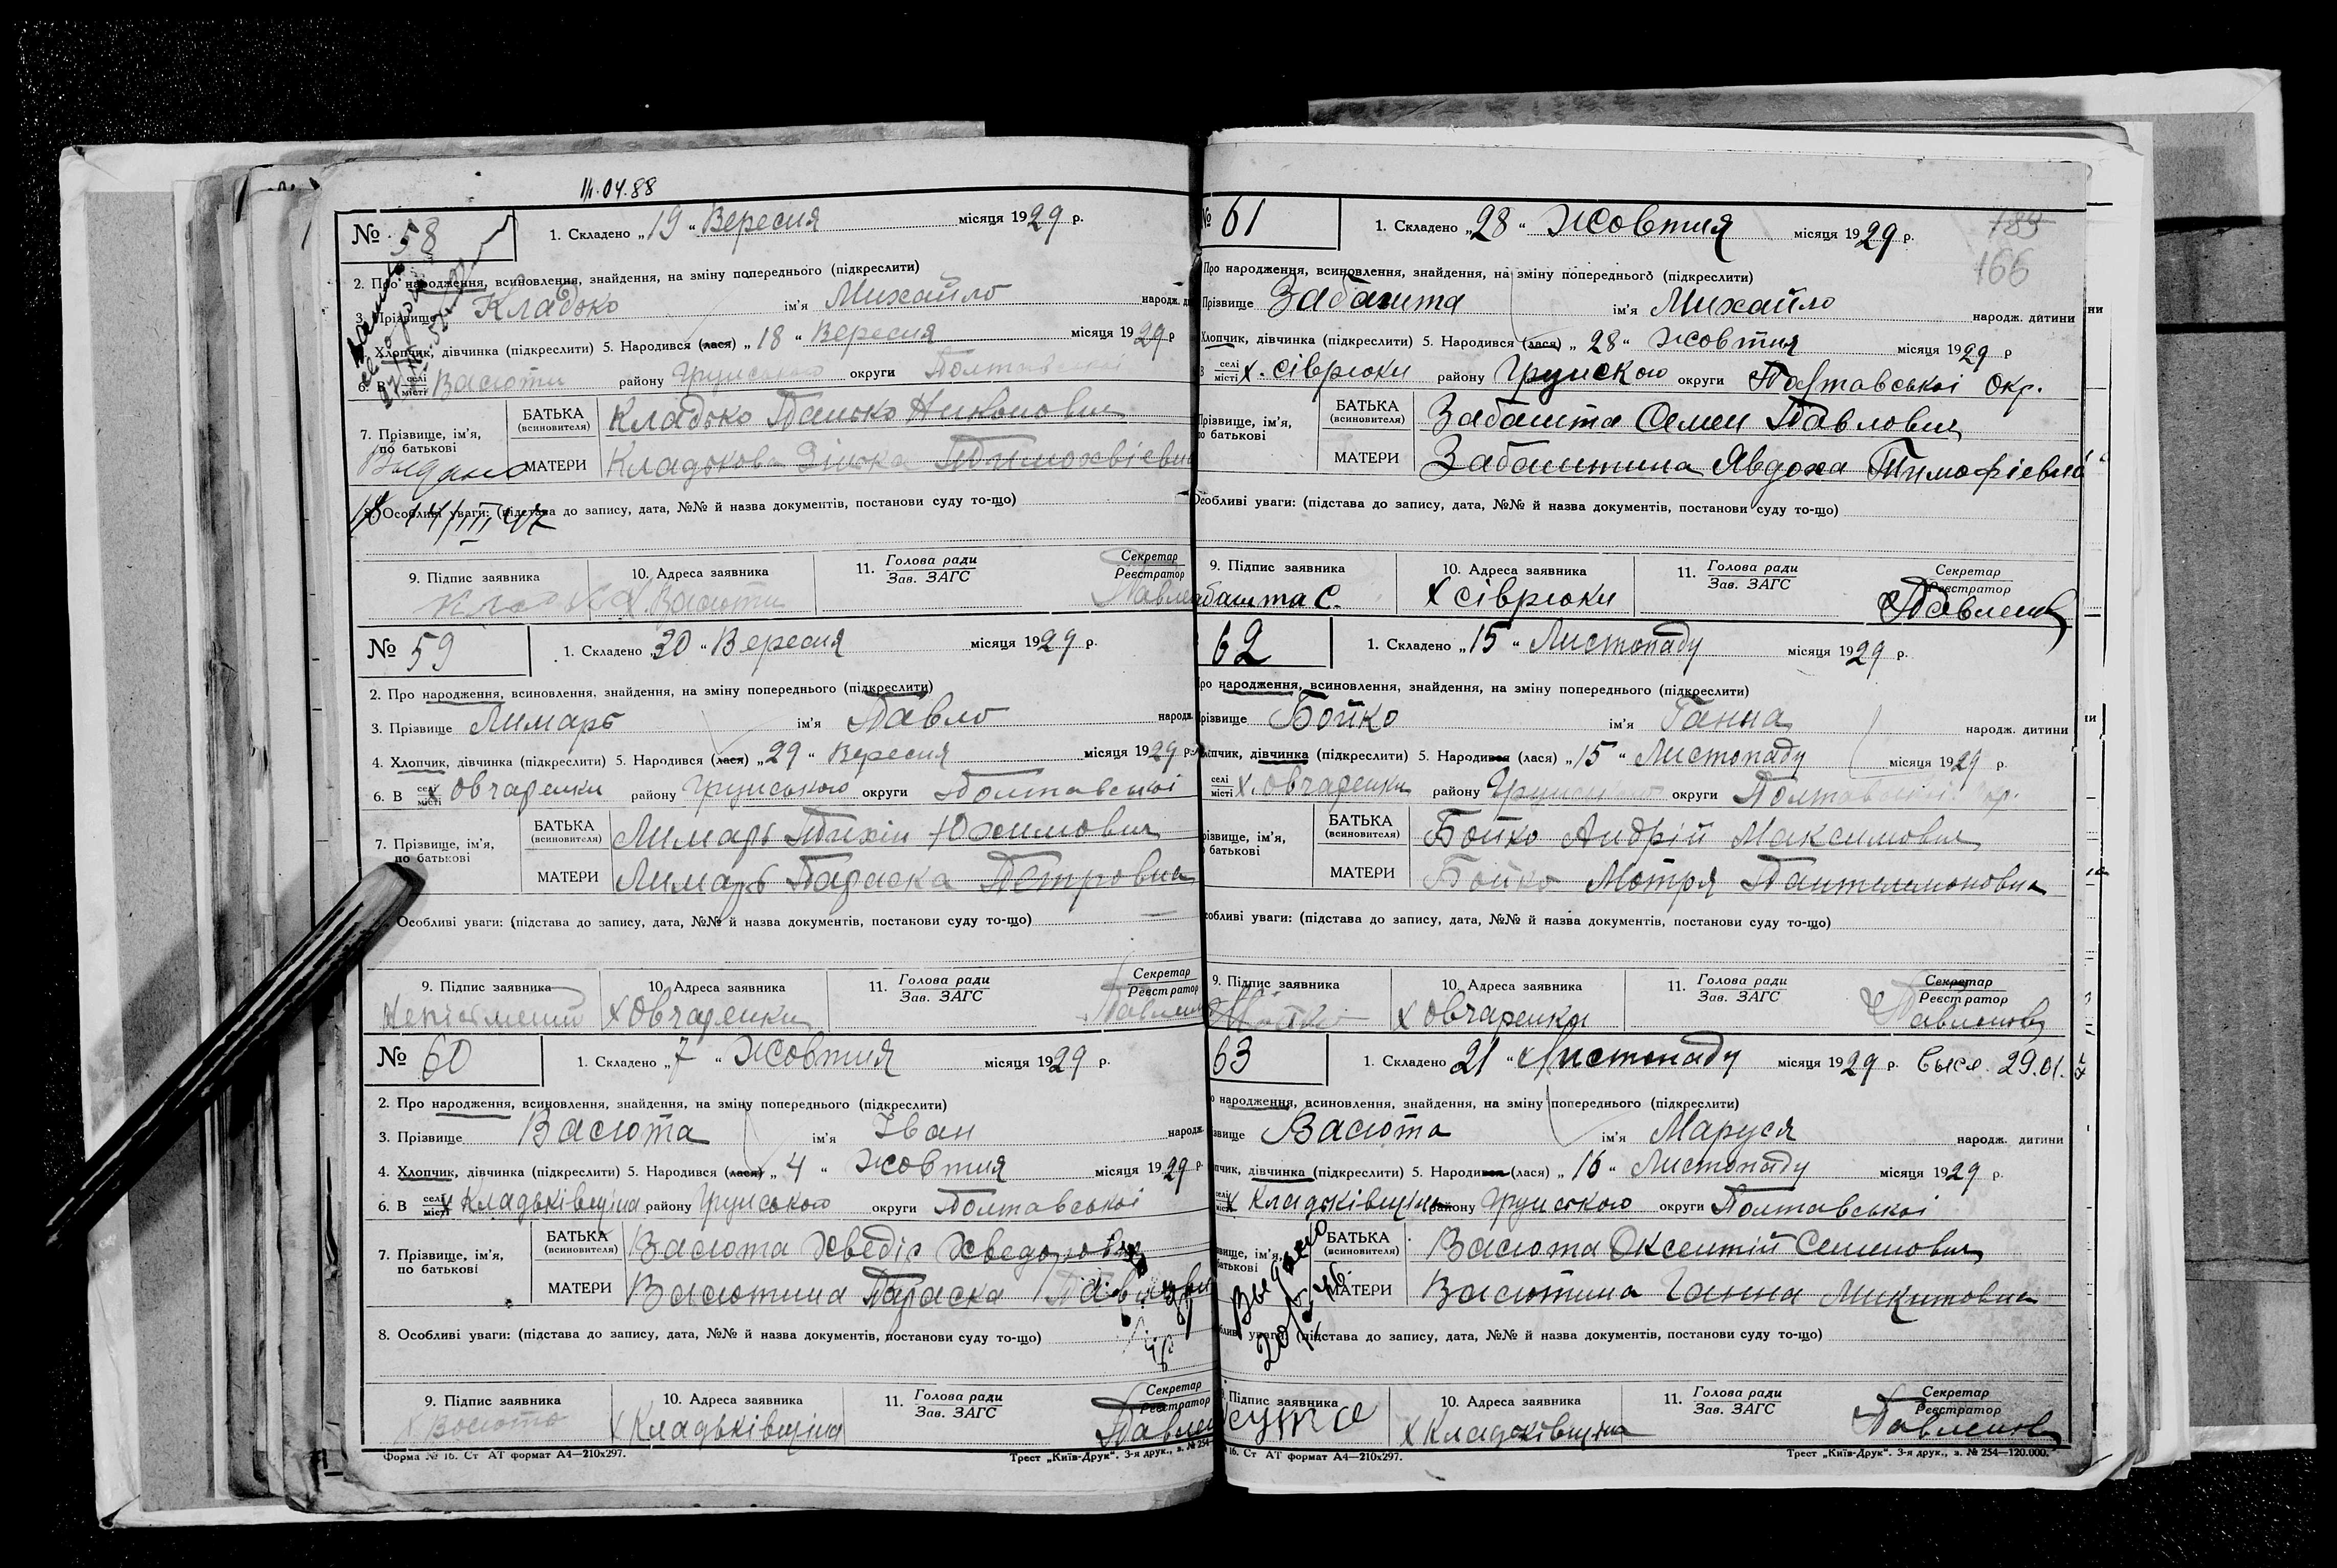 14.04.88
№ 58
1. Складено „19“ Вересня місяця 1929 р.
2. Про народження, всиновлення, знайдення, на зміну попереднього (підкреслити)
3. Прізвище Кладько ім'я Михайло народж.
Хлопчик, дівчинка (підкреслити) 5. Народився (лася) „18“ Вересня місяця 1929 р
6. В селі місті Васюти району Грунського округи Полтавської
7. Прізвище, ім'я, по батькові
БАТЬКА (всиновителя) Кладько Панько Никонович
МАТЕРИ Кладькова Зінька
Видано
8. Особливі уваги: (підстава до запису, дата, №№ й назва документів, постанови суду то-що)
9. Підпис заявника
10. Адреса заявника Х. Васюти
11. Голова ради Зав. ЗАГС
Секретар Реєстратор
№ 59
1. Складено „30“ Вересня місяця 1929 р.
2. Про народження, всиновлення, знайдення, на зміну попереднього (підкреслити)
3. Прізвище Лимарь ім'я Павло народж.
4. Хлопчик, дівчинка (підкреслити) 5. Народився (лася) „29“ Вересня місяця 1929 р.
6. В селі місті х Овчаренки району Грунського округи Полтавської
7. Прізвище, ім'я, по батькові
БАТЬКА (всиновителя) Лимарь Тихін Юхимович
МАТЕРИ Лимарь Параска Петровна
Особливі уваги: (підстава до запису, дата, №№ й назва документів, постанови суду то-що)
9. Підпис заявника Неписменний
10. Адреса заявника х Овчаренки
11. Голова ради Зав. ЗАГС
Секретар Реєстратор
№ 60
1. Складено „7“ Жовтня місяця 1929 р.
2. Про народження, всиновлення, знайдення, на зміну попереднього (підкреслити)
3. Прізвище Васюта ім'я Іван народж.
4. Хлопчик, дівчинка (підкреслити) 5. Народився (лася) „4“ Жовтня місяця 1929 р.
6. В селі місті х Кладьківщина району Грунського округи Полтавської
7. Прізвище, ім'я, по батькові
БАТЬКА (всиновителя) Васюта Хведір Хведорович
МАТЕРИ Васютина Параска
8. Особливі уваги: (підстава до запису, дата, №№ й назва документів, постанови суду то-що)
9. Підпис заявника Х Васюта
10. Адреса заявника х Кладьківщина
11. Голова ради Зав. ЗАГС
Секретар Реєстратор
Форма № 16. Ст АТ формат А4—210х297.
Трест „Київ-Друк“. 3-я друк., з. № 254
№ 61
1. Складено „28“ Жовтня місяця 1929 р.
189
166
Про народження, всиновлення, знайдення, на зміну попереднього (підкреслити)
Прізвище Забашта ім'я Михайло народж. дитини
Хлопчик, дівчинка (підкреслити) 5. Народився (лася) „28“ Жовтня місяця 1929 р
селі місті х. Сіврюки району Грунского округи Полтавської Окр.
Прізвище, ім'я, по батькові
БАТЬКА (всиновителя) Забашта Семен Павлович
МАТЕРИ Забаштина Явдоха Тимофієвна
Особливі уваги: (підстава до запису, дата, №№ й назва документів, постанови суду то-що)
9. Підпис заявника абашта С.
10. Адреса заявника х Сіврюки
11. Голова ради Зав. ЗАГС
Секретар Реєстратор
62
1. Складено „15“ Листопаду місяця 1929 р.
ро народження, всиновлення, знайдення, на зміну попереднього (підкреслити)
різвище Бойко ім'я Ганна народж. дитини
пчик, дівчинка (підкреслити) 5. Народився (лася) „15“ Листопаду місяця 1929 р.
селі місті х. Овчаренки району Грунського округи Полтавської
різвище, ім'я, батькові
БАТЬКА (всиновителя) Бойко Андрій Максимович
МАТЕРИ Бойко Мотря Пантелимоновна
собливі уваги: (підстава до запису, дата, №№ й назва документів, постанови суду то-що)
9. Підпис заявника
10. Адреса заявника х Овчаренки
11. Голова ради Зав. ЗАГС
Секретар Реєстратор
63
1. Складено „21“ Листопаду місяця 1929 р. 29.01.
народження, всиновлення, знайдення, на зміну попереднього (підкреслити)
звище Васюта ім'я Маруся народж. дитини
пчик, дівчинка (підкреслити) 5. Народився (лася) „16“ Листопаду місяця 1929 р.
селі місті х Кладьківщина району Грунського округи Полтавської
вище, ім'я, батькові
БАТЬКА (всиновителя) Васюта Оксентій Семенович
МАТЕРИ Васютина Ганна Микитовна
уваги: (підстава до запису, дата, №№ й назва документів, постанови суду то-що)
Підпис заявника
10. Адреса заявника х Кладьківщина
11. Голова ради Зав. ЗАГС
Секретар Реєстратор
16. Ст АТ формат А4—210х297.
Трест „Київ-Друк“. 3-я друк., з. № 254—120.000.